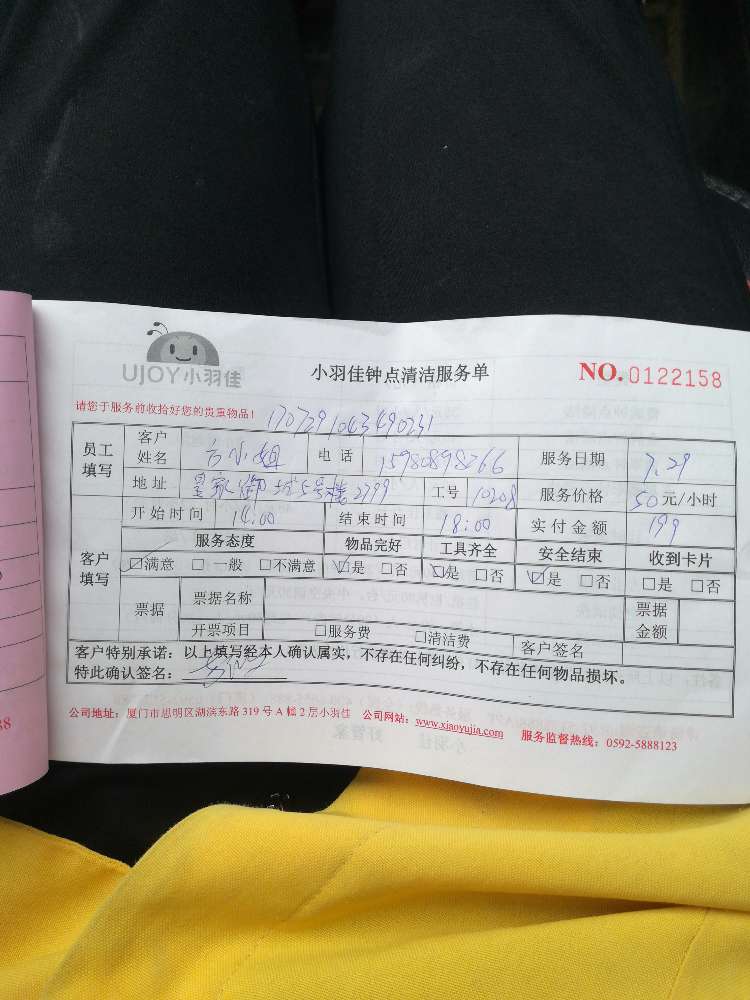 UJOY小羽佳
小羽佳钟点清洁服务单
NO.0122158
请您于服务前收拾好您的贵重物品!
1707291043490231
员工填写 客户姓名 方小姐 电话 15980898266 服务日期 7.29
地址 皇家御城5号楼2799 工号 10208 服务价格 50元/小时
客户填写 开始时间 14:00 结束时间 18:00 实付金额 199
服务态度 物品完好 工具齐全 安全结束 收到卡片
☑满意 □一般 □不满意 ☑是 □否 ☑是 □否 ☑是 □否 □是 □否
票据 票据名称 票据金额
开票项目 □服务费 □清洁费 客户签名
客户特别承诺:以上填写经本人确认属实,不存在任何纠纷,不存在任何物品损坏。
特此确认签名:
公司地址:厦门市思明区湖滨东路319号A幢2层小羽佳 公司网站:www.xiaoyujia.com 服务监督热线:0592-5888123